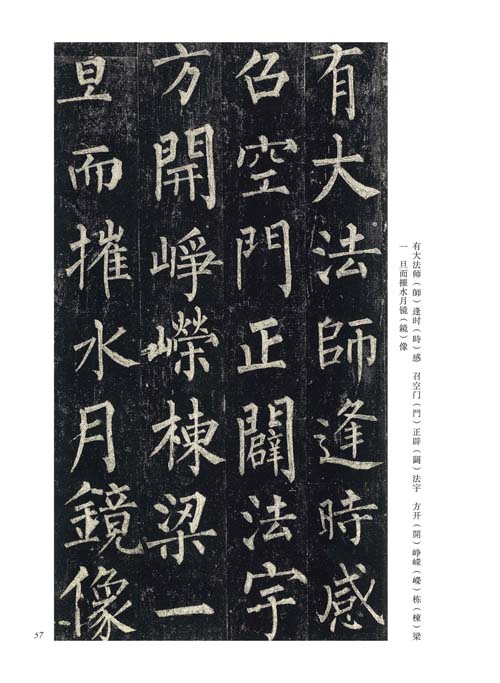 有大法師逢時感
召空門正闢法宇
方開崢嶸棟梁一
旦而摧水月鏡像
有大法师（師）逢时（時）感　召空门（門）正辟（闢）法宇　方开（開）峥嵘（嶸）栋（棟）梁
一　旦而摧水月镜（鏡）像
57